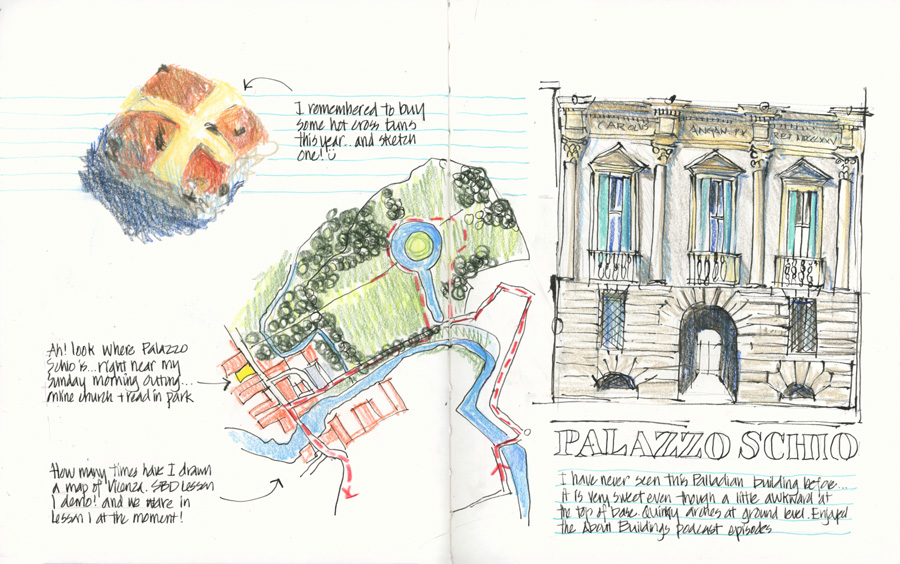 I remembered to buy
some hot cross buns
this year... and sketch
one!
Ah! look where Palazzo
Schio is... right near my
Sunday morning outing...
online church + read in park
How many times have I drawn
a map of Vicenza. SBD Lesson
1 demo! and we were in
Lesson 1 at the moment!
CAROLUS ANGARAN PR
PALAZZO SCHIO
I have never seen this Palladian building before...
it is very sweet even though a little awkward at
the top of base. Quirky arches at ground level. Enjoyed
the About Buildings podcast episodes